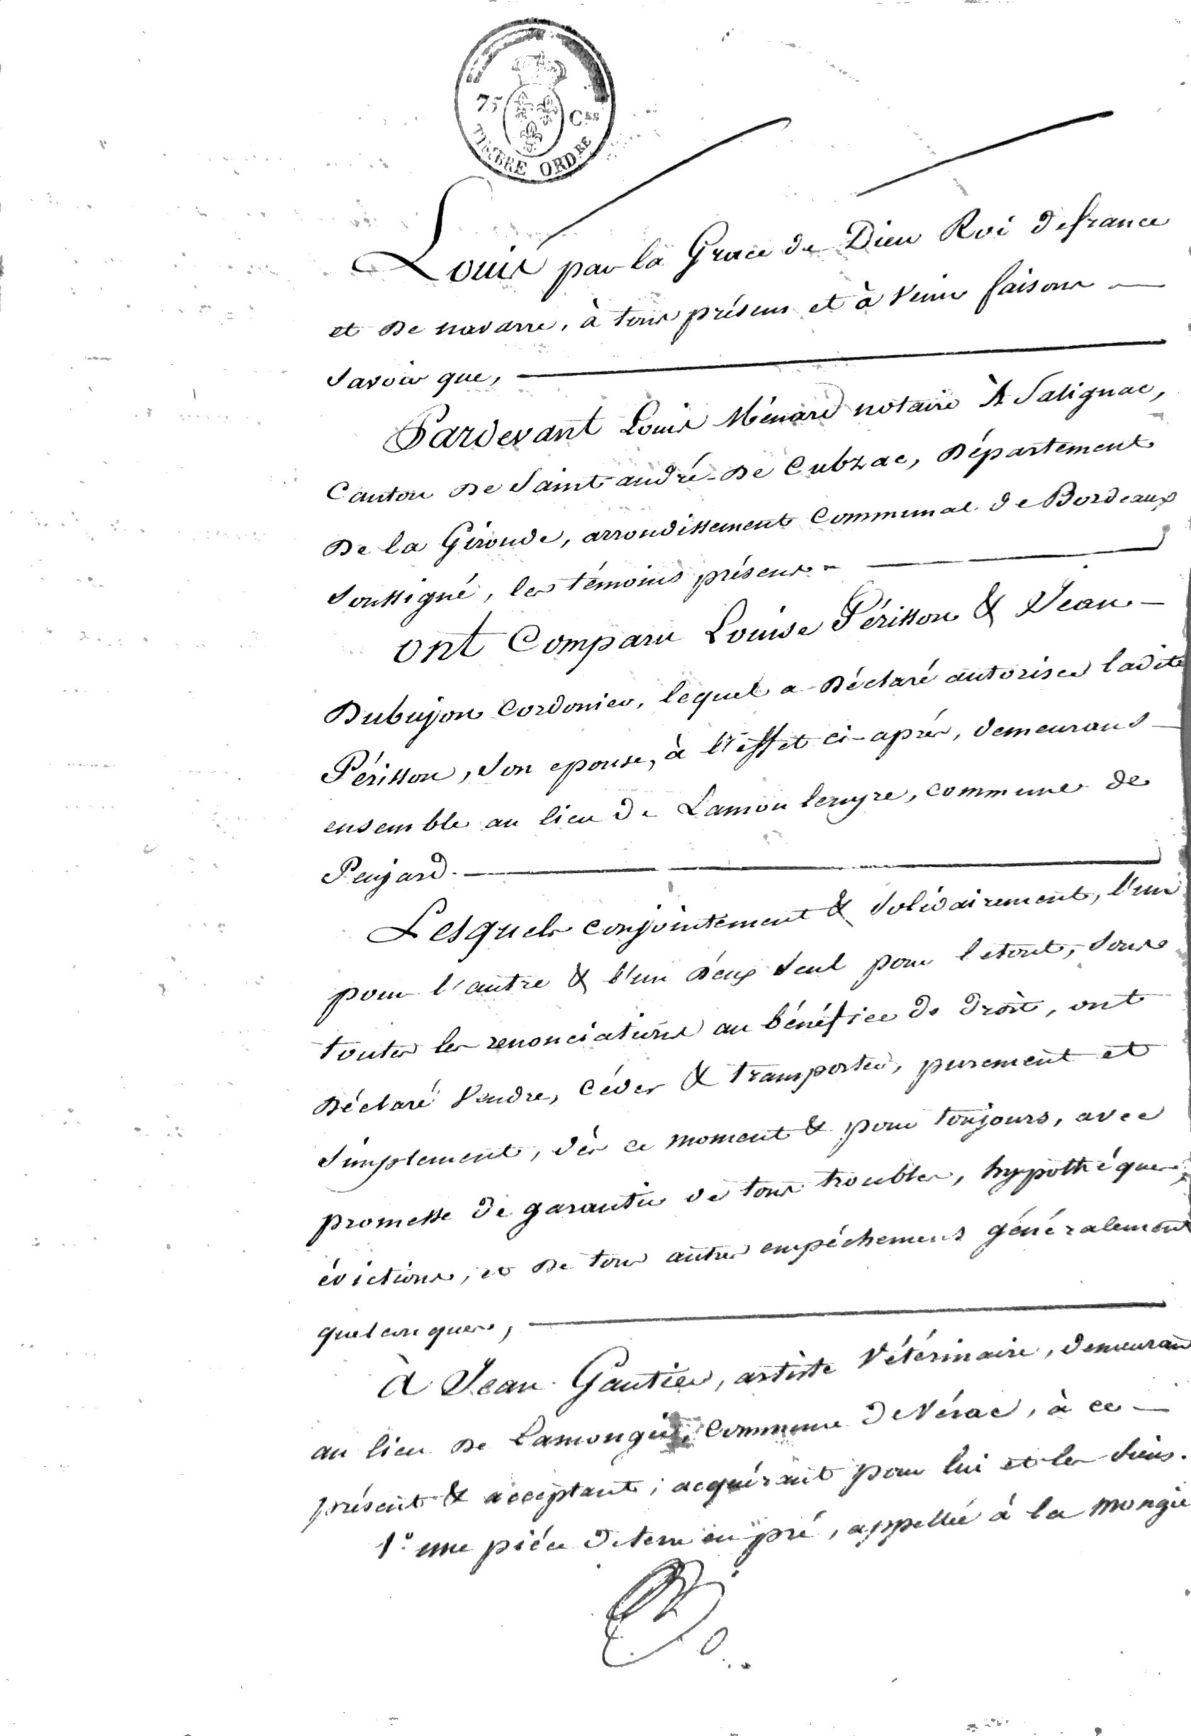 75 Ces
TIMBRE ORDRE
Louis par la Grace de Dieu Roi defrance
et De navarre, à tous présens et à Venir faisons
Savoir que,
Pardevant Louis Ménard notaire À Salignac,
Canton De Saint-andré-De Cubzac, Département
De la Gironde, arrondissement Communal de Bordeaux
Soussigné, les témoins présens
ont Comparu Louise Périsson & Jean
Dubujon Cordonier, lequel a Déclaré autoriser ladite
Périsson, Son epouse, à l'effet ci-après, demeurans
ensemble au lieu de Lamouleuyre, commune de
Peujard.
Lesquels conjointement & Solidairement, l'un
pour l'autre & l'un D'eux Seul pour letout, Sous
toutes les renonciations au bénéfice de droit, ont
Déclaré Vendre, Céder & transporter, purement et
Simplement, dès ce moment & pour toujours, avec
promesse de garantie de tous troubles, hypothéques,
évictions, et De tous autres empêchemens généralement
quelconques,
À Jean Gautier, artiste Vétérinaire, demeurant
au lieu De Lamongie, Commune de Vérac, à ce
présent & acceptant; acquérant pour lui et les Siens.
1° une piéce deterre en pré, appellée à la mongie